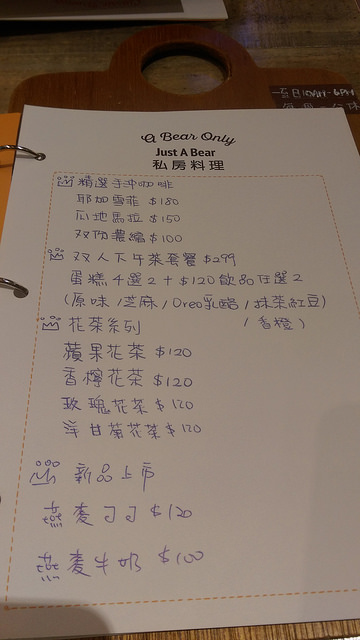 一至日10AM-6PM
A Bear Only
Just A Bear
私房料理
精選手沖咖啡
耶加雪菲 $180
瓜地馬拉 $150
双份濃縮 $100
双人下午茶套餐 $299
蛋糕4選2+$120飲品任選2
(原味/芝麻/Oreo乳酪/抹茶紅豆
/香橙)
花茶系列
蘋果花茶 $120
香檸花茶 $120
玫瑰花茶 $120
洋甘菊花茶 $120
新品上市
燕麦可可 $120
燕麦牛奶 $100